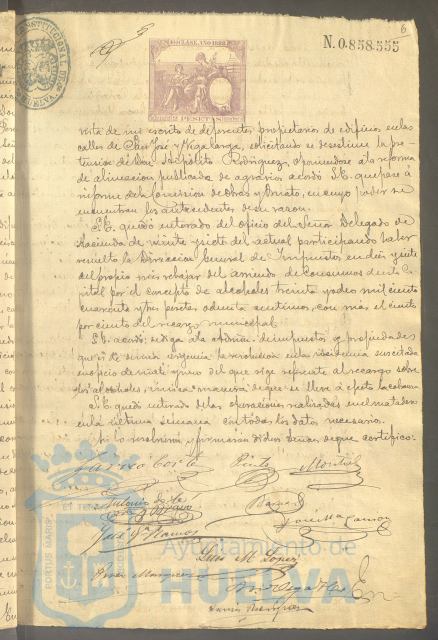 6
N. 0.858.555
CONSTITUCIONAL
HUELVA
CLASE. AÑO 1889
2 PESETAS
vista de un escrito de diferentes propietarios de edificios en las
calles de San José y Vega larga, solicitando se desestime la pre-
tension de Don Hipólito Rodriguez, oponiendose a la reforma
de alineacion publicada de agravios acordó S.E. que pase á
informe de la Comision de Obras y Ornato, en cuyo poder se
encuentran los antecedentes de su razon.
S.E. quedó enterado del oficio del Señor Delegado de
Hacienda de veinte y siete del actual participando haber
resuelto la Direccion General de Impuestos, en diez y siete
del propio mes rebajar del arriendo de consumos de esta Ca-
pital por el concepto de alcoholes treinta y ocho mil ciento
cuarenta y tres pesetas ochenta centimos, con más el ciento
por ciento del recargo municipal.
S.E. acordó se diga a la Admon. de impuestos y propiedades
que es de suma urgencia la resolucion en la incidencia suscitada
en oficio de mil y uno del que rige referente al recargo sobre
los alcoholes única manera de que se lleve á efecto la cobranza
S.E. quedó enterado de las operaciones realizadas en el matadero
en la última semana con todos los datos necesarios.
Así lo resolvieron y firmaron dichos Señores de que certifico:
Garcia Cortes
Pinto
Montiel
Antonio de la
José Gª Ramos
José Mª
Luis M. Lopez
Juan Marquez
ET TERRÆ
PORTUS MARIS
Ayuntamiento de
HUELVA